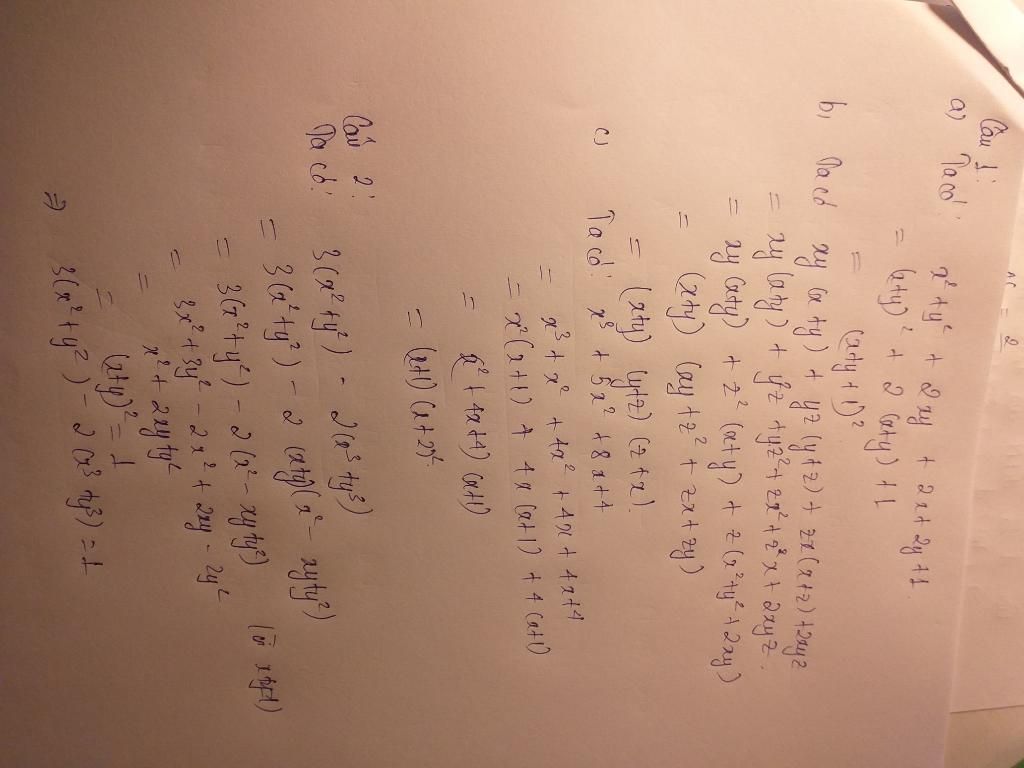 Câu 1:
a) Ta có: x² + y² + 2xy + 2x + 2y + 1
= (x+y)² + 2(x+y) + 1
= (x+y+1)²
b) Ta có xy(x+y) + yz(y+z) + zx(x+z) + 2xyz
= xy(x+y) + y²z + yz² + zx² + z²x + 2xyz.
= xy(x+y) + z²(x+y) + z(x²+y²+2xy)
= (x+y)(xy + z² + zx + zy)
= (x+y)(y+z)(z+x)
c) Ta có: x³ + 5x² + 8x + 4
= x³ + x² + 4x² + 4x + 4x + 4
= x²(x+1) + 4x(x+1) + 4(x+1)
= (x² + 4x + 4)(x+1)
= (x+1)(x+2)²
Câu 2:
Ta có: 3(x² + y²) - 2(x³ + y³)
= 3(x² + y²) - 2(x+y)(x² - xy + y²)
= 3(x² + y²) - 2(x² - xy + y²) (vì x+y=1)
= 3x² + 3y² - 2x² + 2xy - 2y²
= x² + 2xy + y²
= (x+y)² = 1
⇒ 3(x² + y²) - 2(x³ + y³) = 1